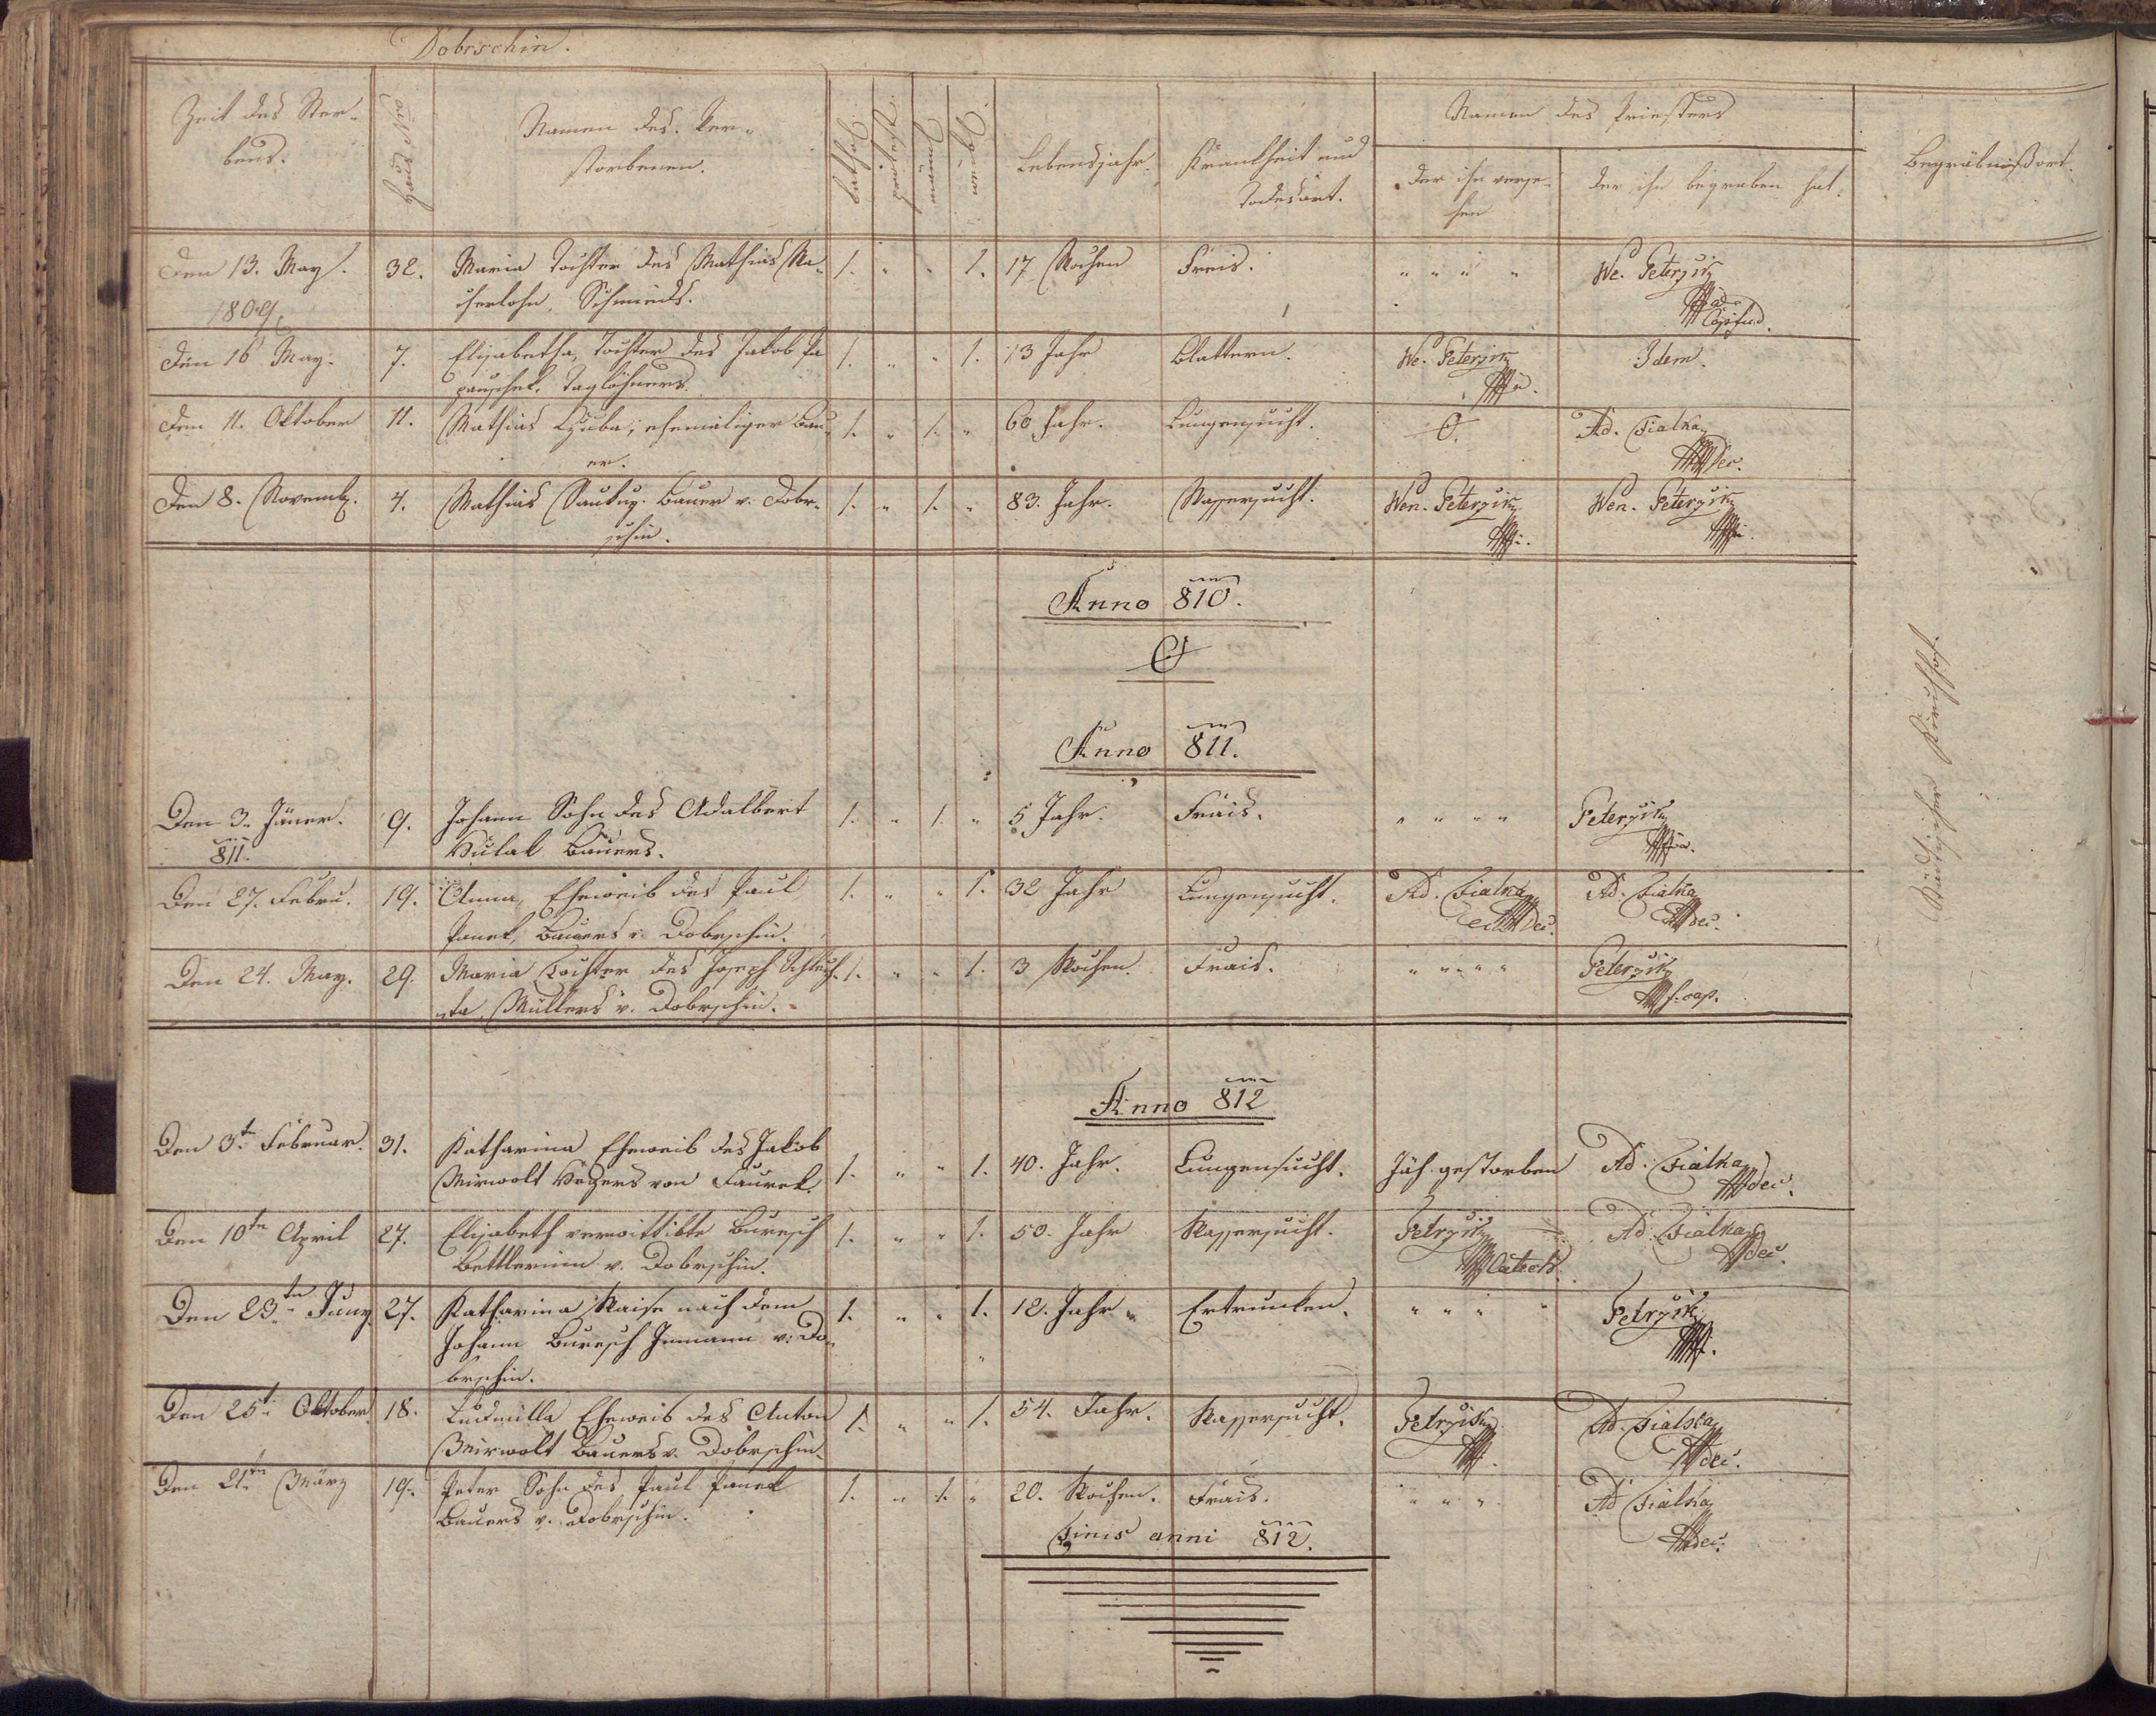 Dobrschin.
Zeit des Ster-
bens.
Haus Nro
Namen des Ver-
storbenen.
kathol.
protest.
männ.
weib.
Lebensjahr.
Krankheit und
Todesart.
Namen des Priesters
der ihn verse-
hen
der ihn begraben hat.
Begräbnißort.
Den 13. May.
1809
32.
Maria Tochter des Mathias
Schmieds.
1. " " 1.
17 Wochen
Freis.
" " " "
We. Peterzik
Den 16 May.
7.
Elisabetha, Tochter des Jakob Pa
pauschek, Taglöhners.
1. " " 1.
13 Jahr
Blattern.
We. Peterzik
Idem.
Den 11. Oktober
11.
Mathias Kuba, ehemaliger Bau-
er.
1. " 1. "
60 Jahr.
Lungensucht.
O.
Ad. Fialka
Dec.
Den 8. Novemb.
4.
Mathias Saukup. Bauer v. Dobr-
schin.
1. " 1. "
83. Jahr.
Wassersucht.
Wen. Peterzik
Wen. Peterzik
Anno 810.
O
Anno 811.
Den 3. Jäner.
811.
9.
Johann Sohn des Adalbert
Kulal Bauers.
1. " 1. "
5 Jahr.
Frais.
" " " "
Peterzik
Den 27. Febru.
19.
Anna, Eheweib des Paul
Panek, Bauers v. Dobrschin.
1. " " 1.
32 Jahr
Lungensucht.
Ad. Fialka
Dec.
Ad. Fialka
Dec.
Den 24. May.
29.
Maria Tochter des Joseph Schlech-
ta, Müllers v. Dobrschin.
1. " " 1.
3 Wochen.
Frais.
" " " "
Peterzik
f. cap.
Anno 812
Den 3t Februar.
31.
Katharina Eheweib des Jakob
Mirwolt Hegers von
1. " " 1.
40. Jahr.
Lungensucht.
Jäh gestorben
Ad. Fialka
dec.
Den 10tn April
27.
Elisabeth verwittibte Buresch
Bettlerinn v. Dobrschin.
1. " " 1.
50. Jahr
Wassersucht.
Petrzik
Ad. Fialka
dec.
Den 23.tn Juny
27.
Katharina Waise nach dem
Johann Buresch Inmann v. Do-
brschin.
1. " " 1.
12. Jahr
Ertrunken.
" " " "
Petrzik
Den 25t. Oktober
18.
Ludmilla Eheweib des Anton
Mirwolt Bauers v. Dobrschin.
1. " " 1.
54. Jahr.
Wassersucht.
Petrzik
Ad. Fialka
dec.
Den 21.tn März
19.
Peter Sohn des Paul Panek
Bauers v. Dobrschin.
1. " 1. "
20. Wochen.
Frais.
" " "
Ad Fialka
dec.
Finis anni 812.
Kirchhof.